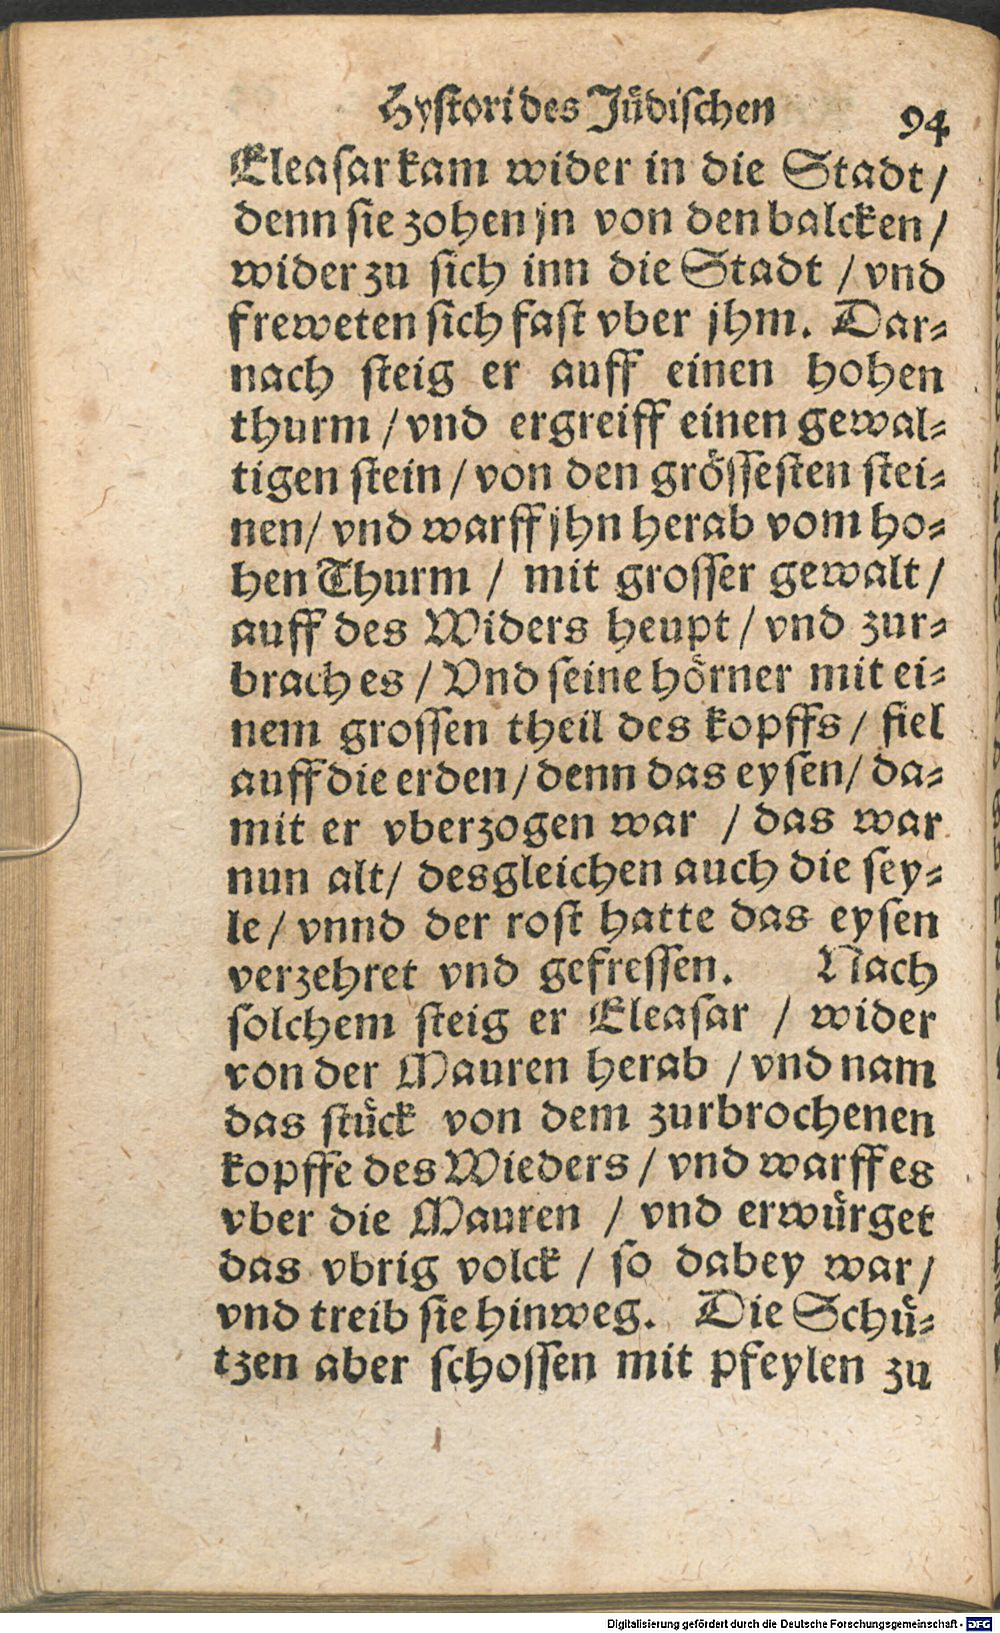 Hystori des Jüdischen 94
Eleasar kam wider in die Stadt /
denn sie zohen jn von den balcken /
wider zu sich inn die Stadt / vnd
freweten sich fast vber jhm. Dar⸗
nach steig er auff einen hohen
thurm / vnd ergreiff einen gewal⸗
tigen stein / von den grössesten stei⸗
nen / vnd warff jhn herab vom ho⸗
hen Thurm / mit grosser gewalt /
auff des Widers heupt / vnd zur⸗
brach es / Vnd seine hörner mit ei⸗
nem grossen theil des kopffs / fiel
auff die erden / denn das eysen / da⸗
mit er vberzogen war / das war
nun alt / desgleichen auch die sey⸗
le / vnnd der rost hatte das eysen
verzehret vnd gefressen. Nach
solchem steig er Eleasar / wider
von der Mauren herab / vnd nam
das stück von dem zurbrochenen
kopffe des Wieders / vnd warff es
vber die Mauren / vnd erwürget
das vbrig volck / so dabey war /
vnd treib sie hinweg. Die Schü⸗
tzen aber schossen mit pfeylen zu
Digitalisierung gefördert durch die Deutsche Forschungsgemeinschaft - DFG